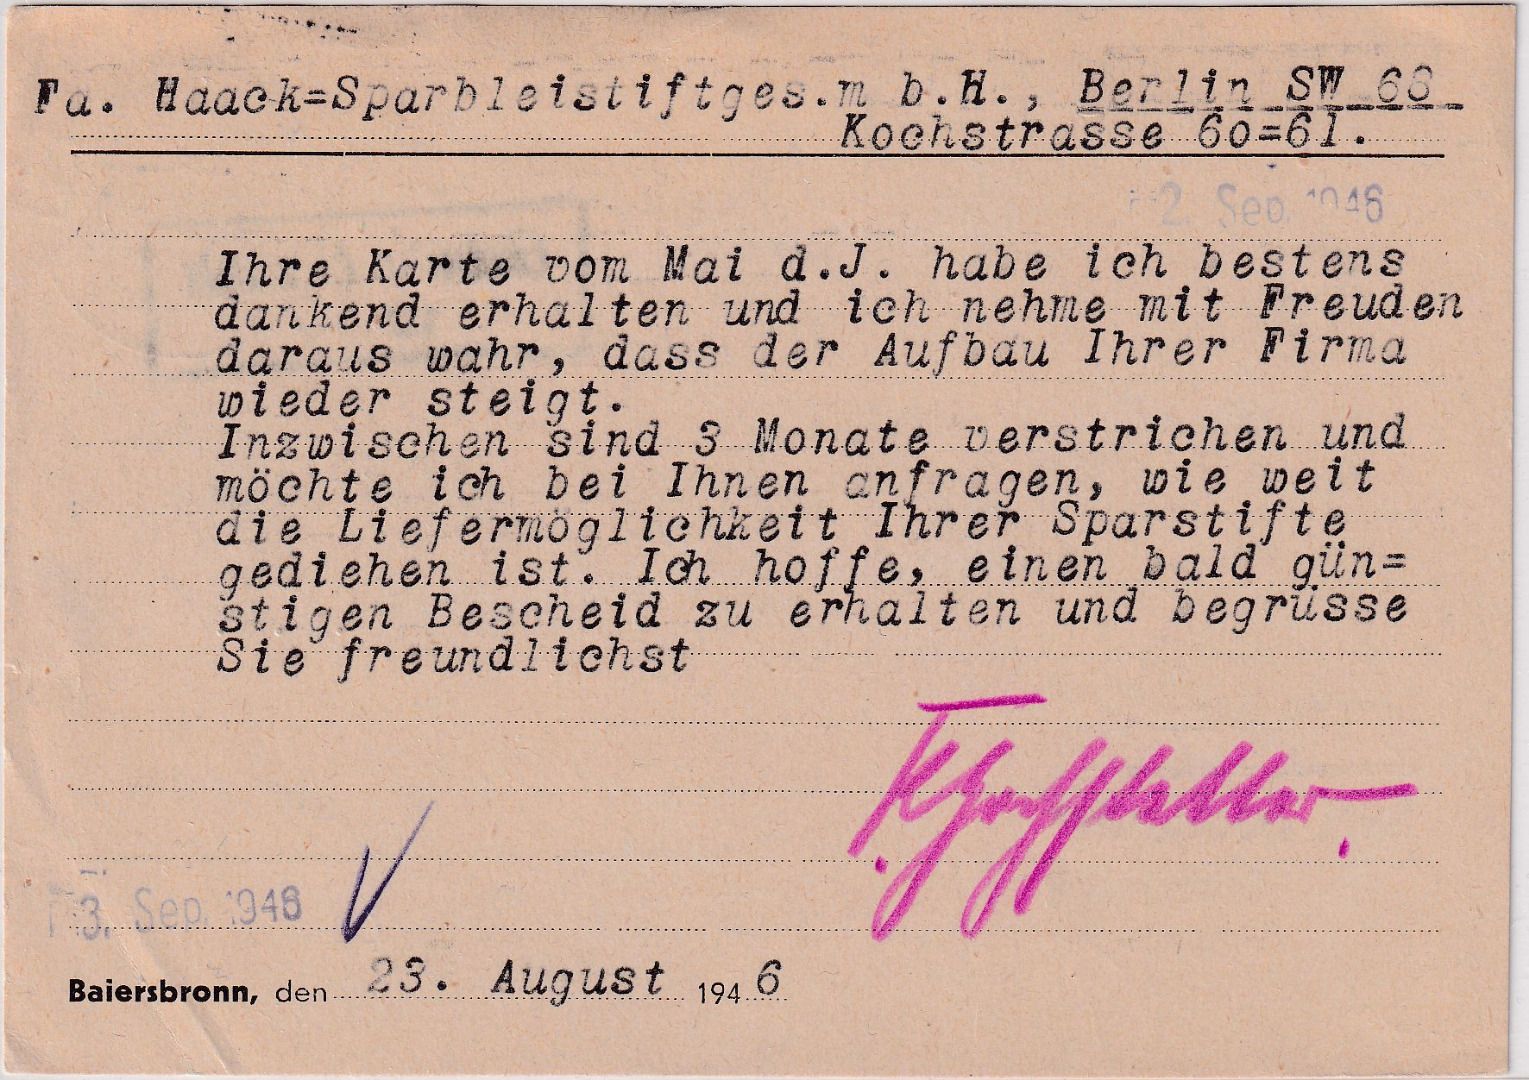 Fa. Haack=Sparbleistiftges.m b.H., Berlin SW 68
Kochstrasse 60=61.
2. Sep. 1946
Ihre Karte vom Mai d.J. habe ich bestens
dankend erhalten und ich nehme mit Freuden
daraus wahr, dass der Aufbau Ihrer Firma
wieder steigt.
Inzwischen sind 3 Monate verstrichen und
möchte ich bei Ihnen anfragen, wie weit
die Liefermöglichkeit Ihrer Sparstifte
gediehen ist. Ich hoffe, einen bald gün=
stigen Bescheid zu erhalten und begrüsse
Sie freundlichst
3. Sep. 1946
Baiersbronn, den 23. August 1946